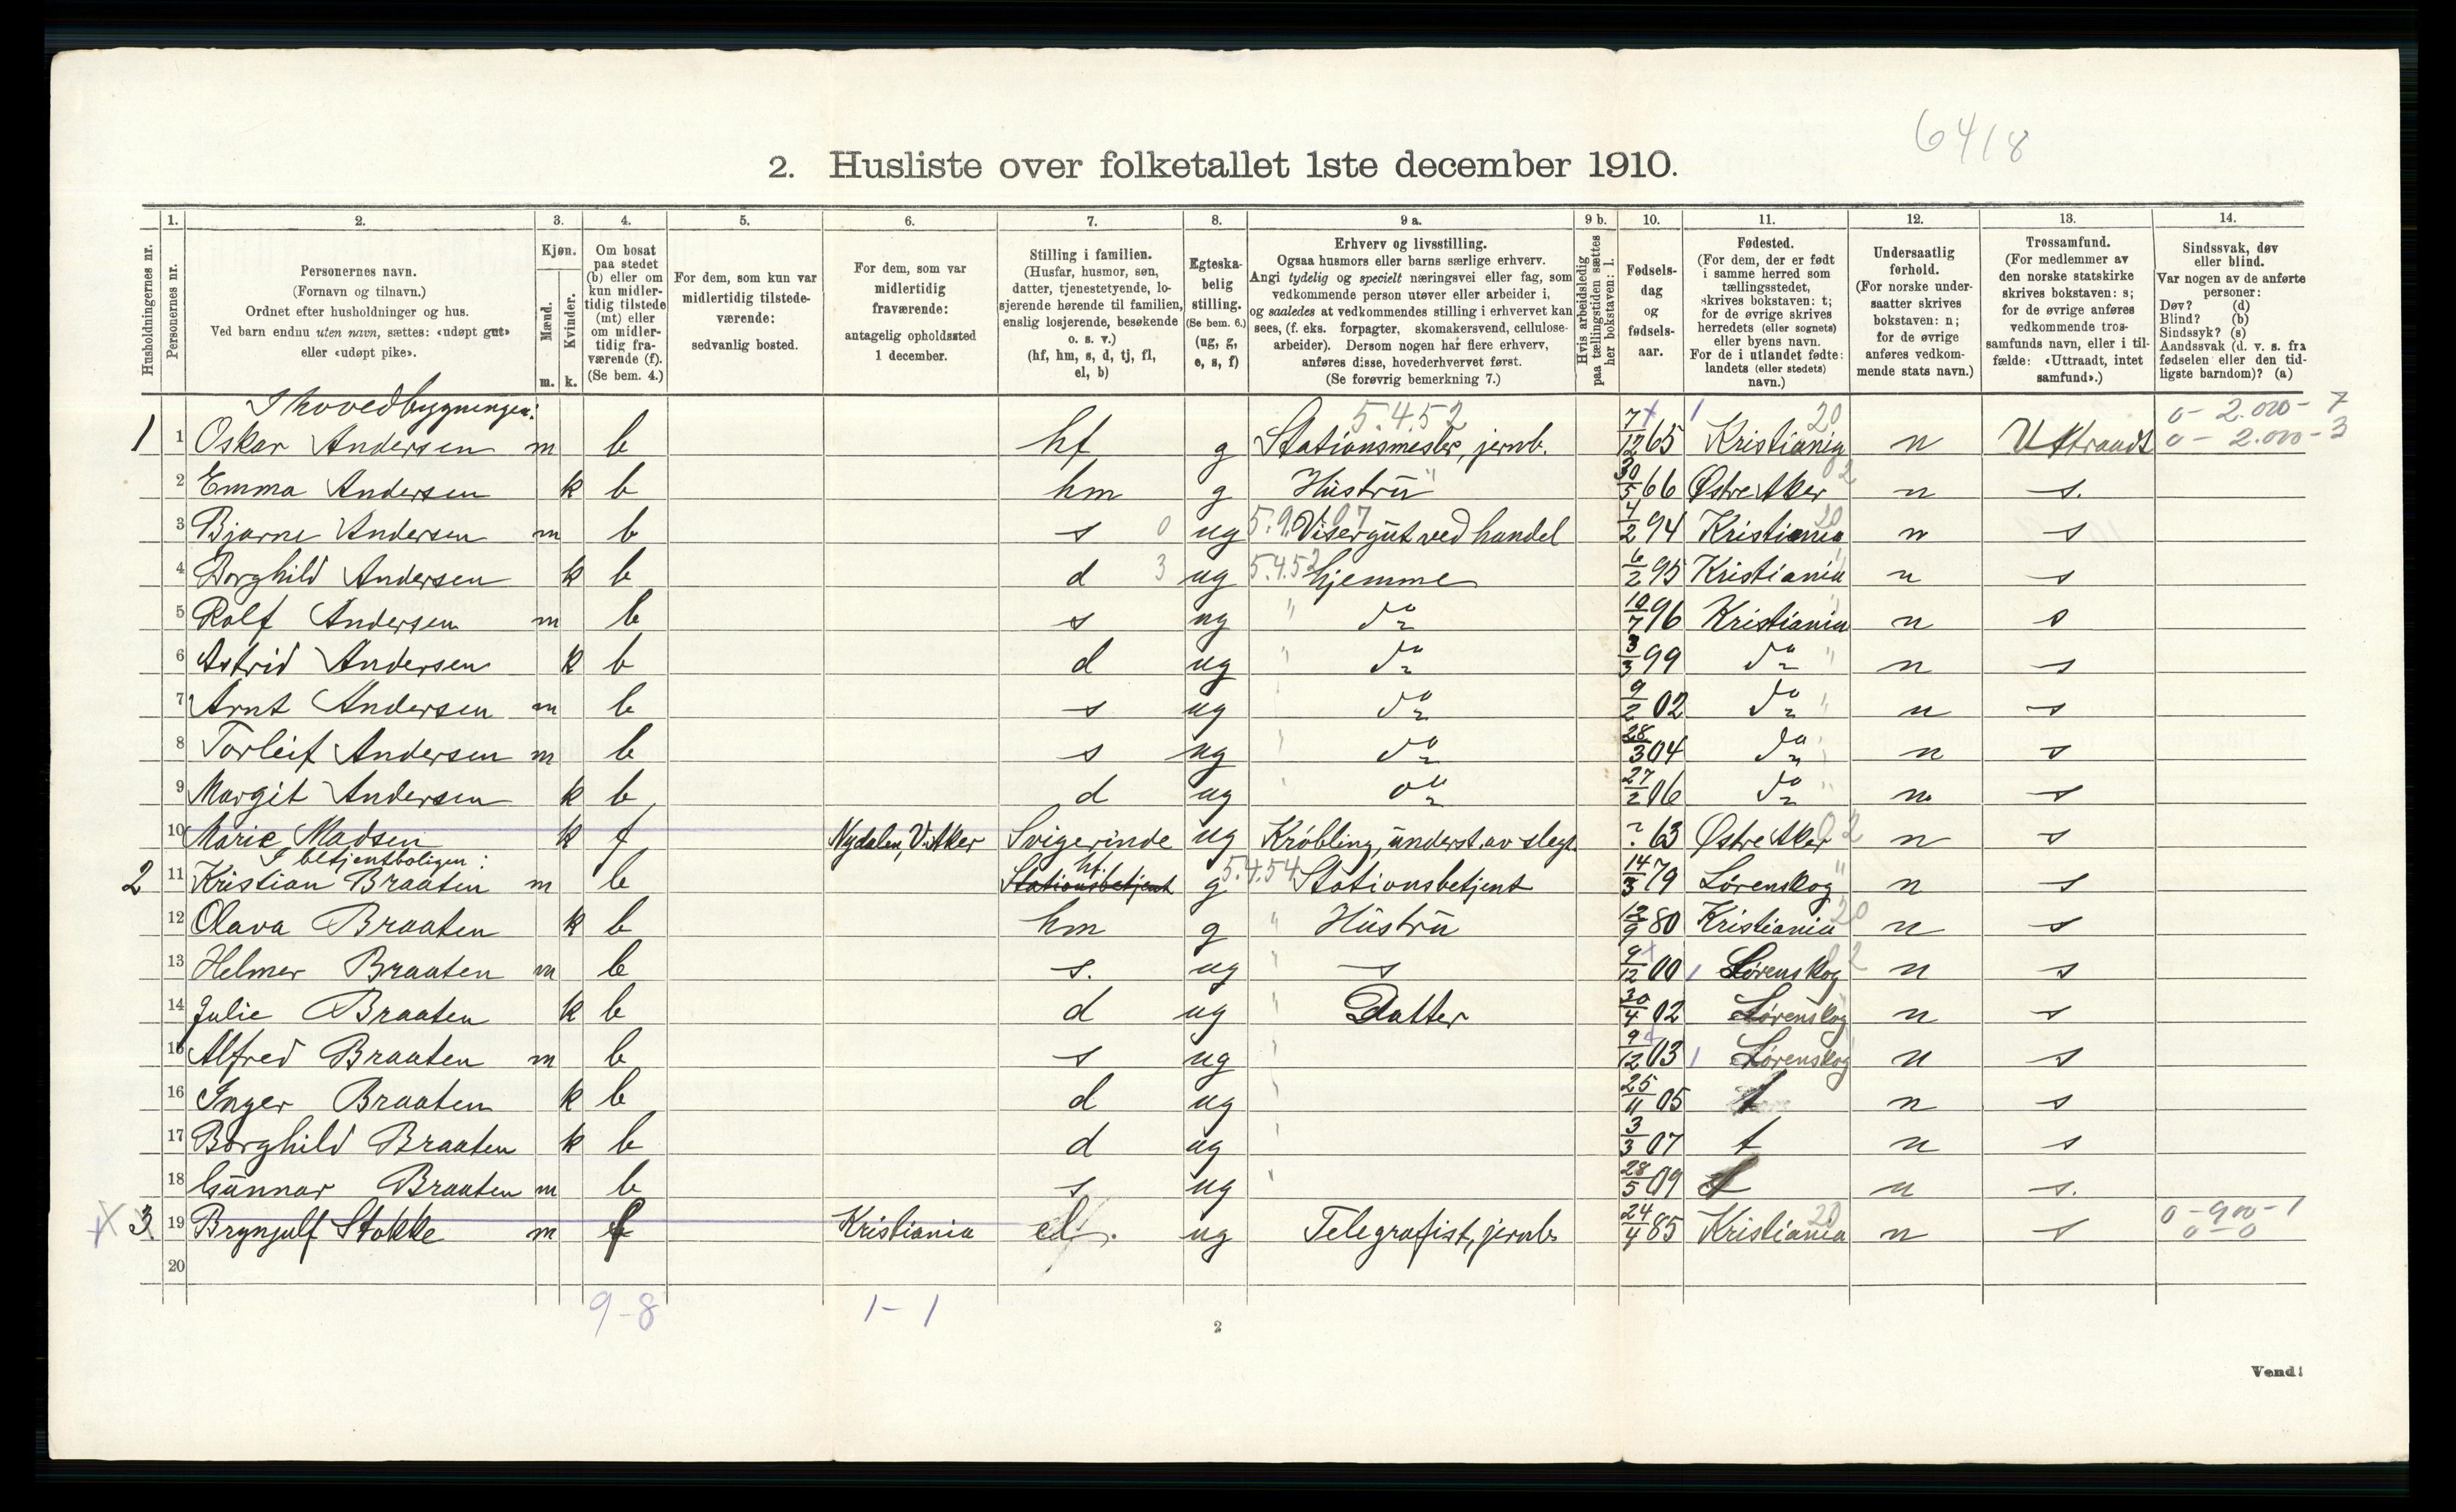 6418
2. Husliste over folketallet 1ste december 1910.
Husholdningernes nr.
1. Personernes nr.
2. Personernes navn. (Fornavn og tilnavn.) Ordnet efter husholdninger og hus. Ved barn endnu uten navn, sættes: «udøpt gut» eller «udøpt pike».
3. Kjøn. Mænd. m. Kvinder. k.
4. Om bosat paa stedet (b) eller om kun midlertidig tilstede (mt) eller om midlertidig fraværende (f). (Se bem. 4.)
5. For dem, som kun var midlertidig tilstedeværende: sedvanlig bosted.
6. For dem, som var midlertidig fraværende: antagelig opholdssted 1 december.
7. Stilling i familien. (Husfar, husmor, søn, datter, tjenestetyende, losjerende hørende til familien, enslig losjerende, besøkende o. s. v.) (hf, hm, s, d, tj, fl, el, b)
8. Egteskabelig stilling. (Se bem. 6.) (ug, g, e, s, f)
9 a. Erhverv og livsstilling. Ogsaa husmors eller barns særlige erhverv. Angi tydelig og specielt næringsvei eller fag, som vedkommende person utøver eller arbeider i, og saaledes at vedkommendes stilling i erhvervet kan sees, (f. eks. forpagter, skomakersvend, cellulosearbeider). Dersom nogen har flere erhverv, anføres disse, hovederhvervet først. (Se forøvrig bemerkning 7.)
9 b. Hvis arbeidsledig paa tællingstiden sættes her bokstaven: l.
10. Fødselsdag og fødselsaar.
11. Fødested. (For dem, der er født i samme herred som tællingsstedet, skrives bokstaven: t; for de øvrige skrives herredets (eller sognets) eller byens navn. For de i utlandet fødte: landets (eller stedets) navn.)
12. Undersaatlig forhold. (For norske undersaatter skrives bokstaven: n; for de øvrige anføres vedkommende stats navn.)
13. Trossamfund. (For medlemmer av den norske statskirke skrives bokstaven: s; for de øvrige anføres vedkommende trossamfunds navn, eller i tilfælde: «Uttraadt, intet samfund».)
14. Sindssvak, døv eller blind. Var nogen av de anførte personer: Døv? (d) Blind? (b) Sindssyk? (s) Aandssvak (d. v. s. fra fødselen eller den tidligste barndom)? (a)
I hovedbygningen: 5.4.52 20 0 - 2.000 - 7
1 1 Oskar Andersen m b hf g Stationsmester, jernb. 7/12 65 Kristiania n Uttraadt 0 - 2.000 - 3
2 Emma Andersen k b hm g " Hustru 30/5 66 Østre Aker 02 n s.
3 Bjarne Andersen m b s 0 ug Visergut ved handel 4/2 94 Kristiania 20 n s
4 Borghild Andersen k b d 3 ug 5.4.52 hjemme 6/2 95 Kristiania " n s
5 Rolf Andersen m b s ug " do 10/7 96 Kristiania " n s
6 Astrid Andersen k b d ug " do 3/3 99 do " n s
7 Arnt Andersen m b s ug " do 9/2 02 do " n s
8 Torleif Andersen m b s ug " do 28/3 04 do " n s
9 Margit Andersen k b d ug " do 27/2 06 do " n s
10 Marie Madsen k f Nydalen, V. Aker Svigerinde ug Krøbling, underst. av slegt. ? 63 Østre Aker 02 n s
I betjentboligen: hf.
2 11 Kristian Braaten m b Stationsbetjent g 5.4.54 Stationsbetjent 14/3 79 Lørenskog " n s
12 Olava Braaten k b hm g " Hustru 12/9 80 Kristiania 20 n s
13 Helmer Braaten m b s. ug " s 9/12 00 1 Lørenskog 02 n s
14 Julie Braaten k b d ug " Datter 30/4 02 Lørenskog n s
15 Alfred Braaten m b s ug " 9/12 03 1 Lørenskog n s
16 Inger Braaten k b d ug " 25/11 05 t n s
17 Borghild Braaten k b d ug " 3/3 07 t n s
18 Gunnar Braaten m b s ug " 28/5 09 t n s.
X 3 19 Brynjulf Stokke m f Kristiania el. ug Telegrafist, jernb. 24/4 85 Kristiania 20 n s 0 - 900 - 1 0 - 0
20
9 - 8 1 - 1
2
Vend!